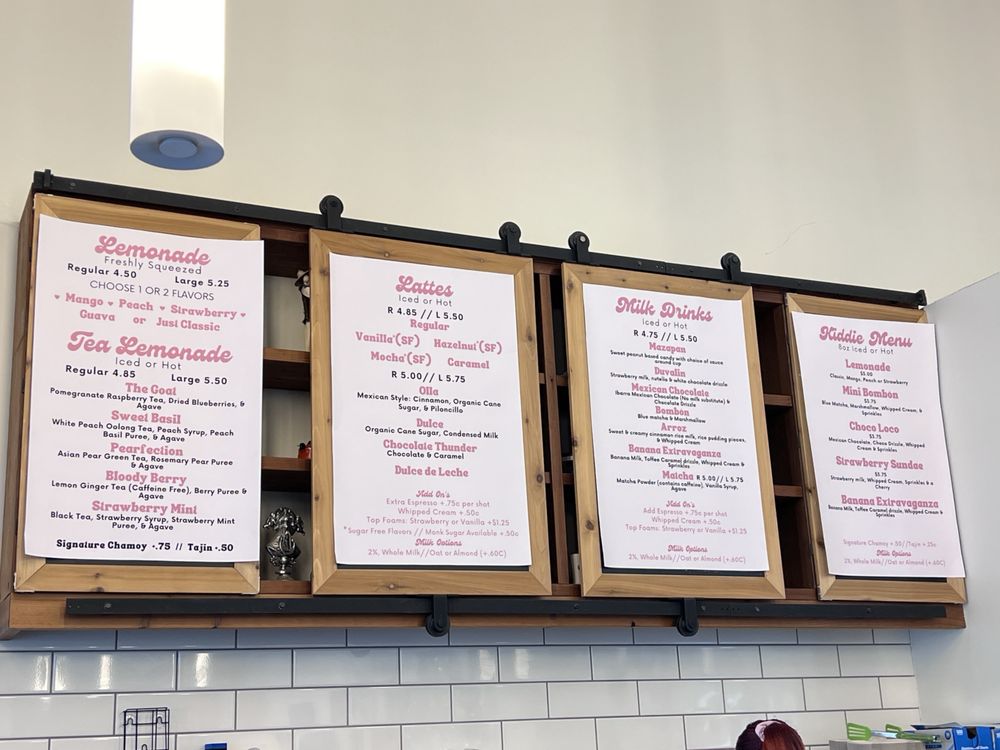 Lemonade
Freshly Squeezed
Regular 4.50 Large 5.25
CHOOSE 1 OR 2 FLAVORS
♥ Mango ♥ Peach ♥ Strawberry ♥
Guava or Just Classic
Tea Lemonade
Iced or Hot
Regular 4.85 Large 5.50
The Goat
Pomegranate Raspberry Tea, Dried Blueberries, &
Agave
Sweet Basil
White Peach Oolong Tea, Peach Syrup, Peach
Basil Puree, & Agave
Pearfection
Asian Pear Green Tea, Rosemary Pear Puree
& Agave
Bloody Berry
Lemon Ginger Tea (Caffeine Free), Berry Puree &
Agave
Strawberry Mint
Black Tea, Strawberry Syrup, Strawberry Mint
Puree, & Agave
Signature Chamoy +.75 // Tajin +.50
Lattes
Iced or Hot
R 4.85 // L 5.50
Regular
Vanilla*(SF) Hazelnut*(SF)
Mocha*(SF) Caramel
R 5.00// L 5.75
Olla
Mexican Style: Cinnamon, Organic Cane
Sugar, & Piloncillo
Dulce
Organic Cane Sugar, Condensed Milk
Chocolate Thunder
Chocolate & Caramel
Dulce de Leche
Add On's
Extra Espresso +.75c per shot
Whipped Cream +.50c
Top Foams: Strawberry or Vanilla +$1.25
*Sugar Free Flavors // Monk Sugar Available +.50c
Milk Options
2%, Whole Milk//Oat or Almond (+.60C)
Milk Drinks
Iced or Hot
R 4.75 // L 5.50
Mazapan
Sweet peanut based candy with choice of sauce
around cup
Duvalin
Strawberry milk, nutella & white chocolate drizzle
Mexican Chocolate
Ibarra Mexican Chocolate (No milk substitute) &
Chocolate Drizzle
Bombón
Blue matcha & Marshmallow
Arroz
Sweet & creamy cinnamon rice milk, rice pudding pieces,
& Whipped Cream
Banana Extravaganza
Banana Milk, Toffee Caramel drizzle, Whipped Cream &
Sprinkles
Matcha R 5.00// L 5.75
Matcha Powder (contains caffeine), Vanilla Syrup,
Agave
Add On's
Add Espresso +.75c per shot
Whipped Cream +.50c
Top Foams: Strawberry or Vanilla +$1.25
Milk Options
2%, Whole Milk//Oat or Almond (+.60C)
Kiddie Menu
8oz Iced or Hot
Lemonade
$3.00
Classic, Mango, Peach or Strawberry
Mini Bombón
$3.75
Blue Matcha, Marshmallow, Whipped Cream, &
Sprinkles
Choco Loco
$3.75
Mexican Chocolate, Choco Drizzle, Whipped
Cream & Sprinkles
Strawberry Sundae
$3.75
Strawberry milk, Whipped Cream, Sprinkles & a
Cherry
Banana Extravaganza
Banana Milk, Toffee Caramel drizzle, Whipped Cream &
Sprinkles
Signature Chamoy +.50//Tajin +.25c
Milk Options
2%, Whole Milk//Oat or Almond (+.60C)